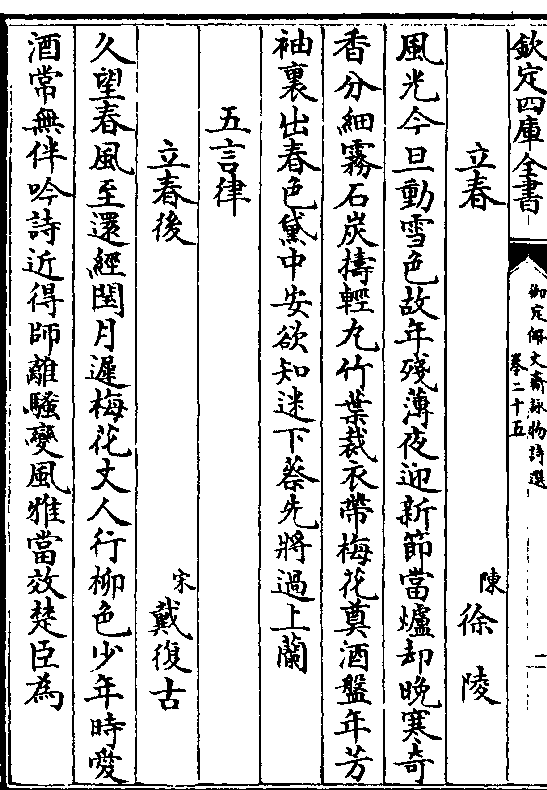 欽定四庫全書
御定佩文齋詠物詩選
卷二十五
二
立春
陳
徐陵
風光今旦動雪色故年殘薄夜迎新節當爐却晚寒奇
香分細霧石炭擣輕丸竹葉裁衣帶梅花奠酒盤年芳
袖裏出春色黛中安欲知迷下蔡先將過上蘭
五言律
立春後
宋
戴復古
久望春風至還經閏月遲梅花丈人行柳色少年時愛
酒常無伴吟詩近得師離騷變風雅當效楚臣為